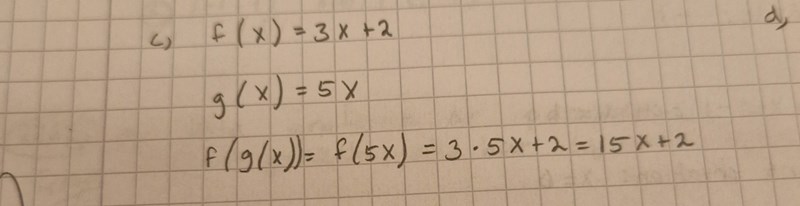 c) f(x) = 3x + 2 d)
g(x) = 5x
f(g(x)) = f(5x) = 3 · 5x + 2 = 15x + 2